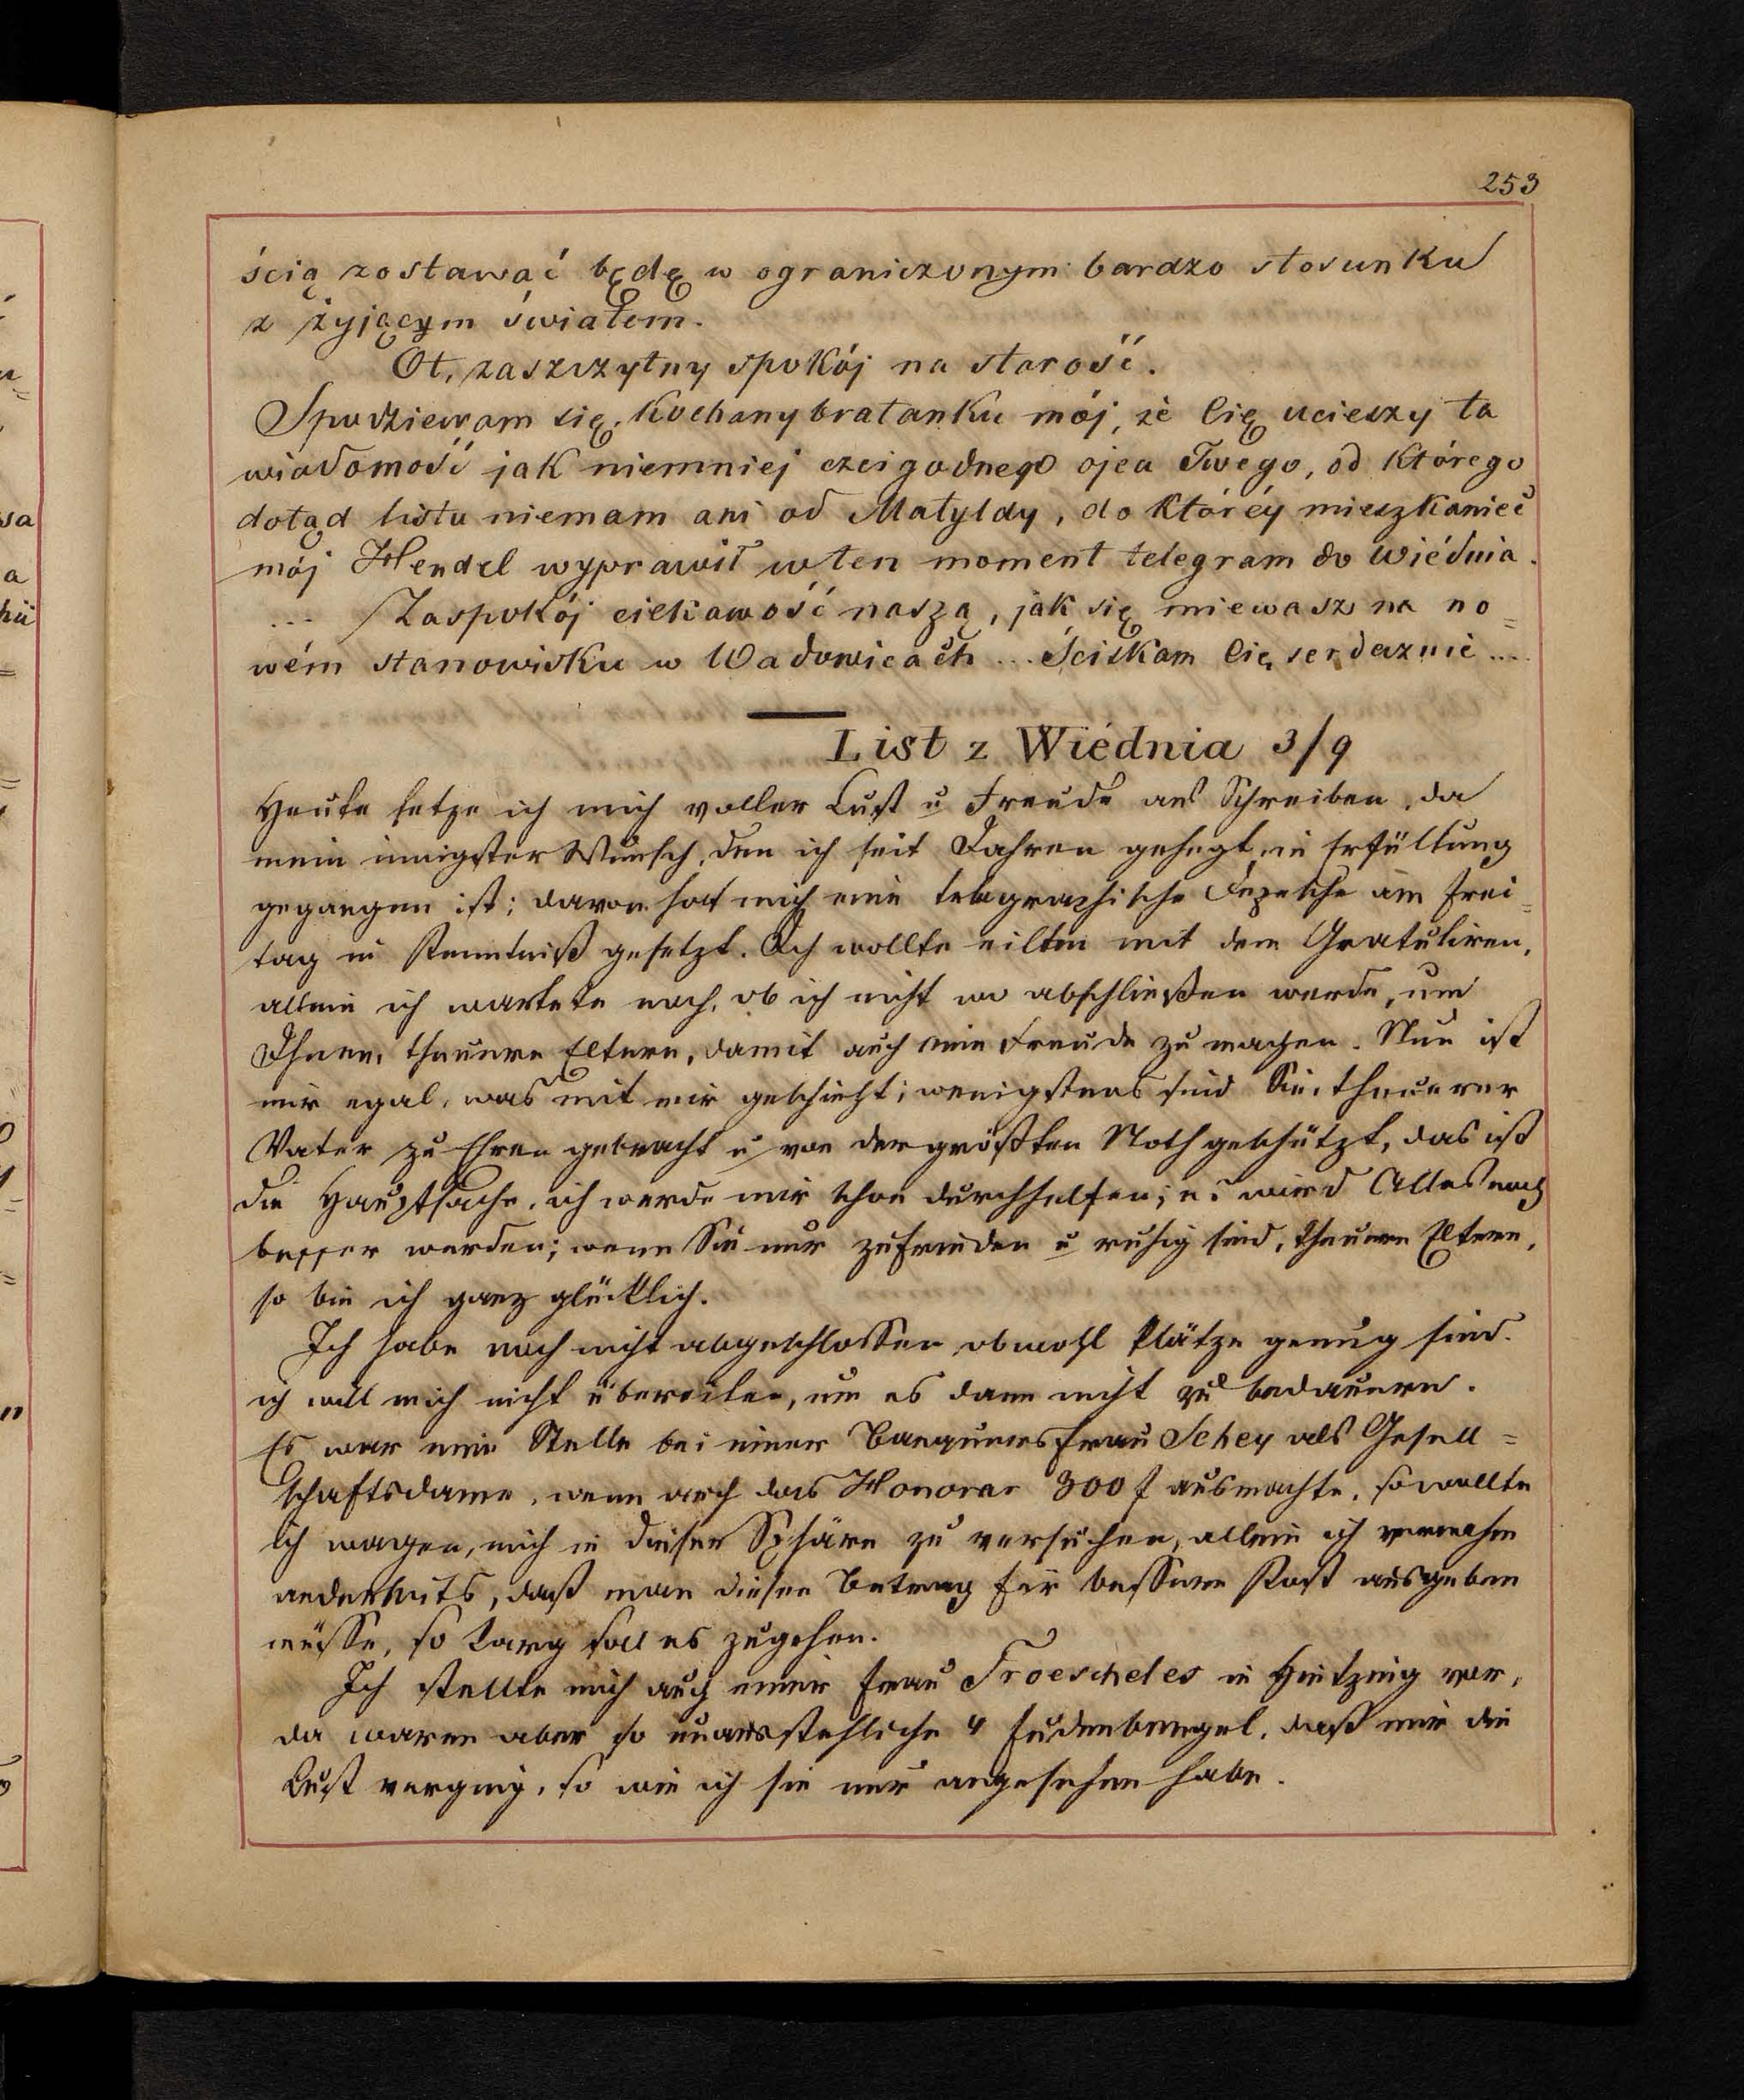 253
ścią zostawać będę w ograniczonym bardzo stosunku
z żyjącym światem.
Ot, zaszczytny spokój na starość.
Spodziewam się, kochany bratanku mój, że Cię ucieszy ta
wiadomość jak niemniej czcigodnego ojca Twego, od którego
dotąd listu niemam ani od Matyldy, do któréy mieszkaniec
mój Hendel wyprawił w ten moment telegram do Wiédnia.
... Zaspokój ciekawość naszą, jak się miewasz na no=
wém stanowisku w Wadowicach... Ściskam Cię serdecznie....
List z Wiédnia 3/9
Heute setze ich mich voller Lust u Freude ans Schreiben, da
mein innigster Wunsch, den ich seit Jahren gehegt, in Erfüllung
gegangen ist; davon hat mich eine telegraphische Depesche am Frei=
tag in Kenntniß gesetzt. Ich wollte eilten mit dem Gratuliren,
allein ich wartete noch, ob ich nicht wo abschließen werde, um
Ihnen, theuere Eltern, damit auch eine Freude zu machen. Nun ist
mir egal, was mit mir geschieht; wenigstens sind Sie, theuerer
Vater zu Ehren gebracht u von der größten Noth geschützt, das ist
die Hauptsache, ich werde mir schon durchhelfen; es wird Alles noch
besser werden; wenn Sie nur zufrieden u ruhig sind, theuere Eltern,
so bin ich ganz glücklich.
Ich habe noch nicht abgeschlossen obwohl Plätze genug sind.
ich will mich nicht übereilen, um es dann nicht zu bedauern.
Es war eine Stelle bei einer Banquiersfrau Schey als Gesell=
schaftsdame, wenn auch das Honorar 300 f ausmachte, so wollte
ich wagen, mich in dieser Sphäre zu versuchen, allein ich vernahm
anderseits, daß man diesen Betrag für bessere Kost ausgeben
müsse, so karg soll es zugehen.
Ich stellte mich auch einer Frau Troescheles in Hietzing vor,
da waren aber so unausstehliche 4 Judenbengel, daß mir die
Lust verging, so wie ich sie nur angesehen habe.